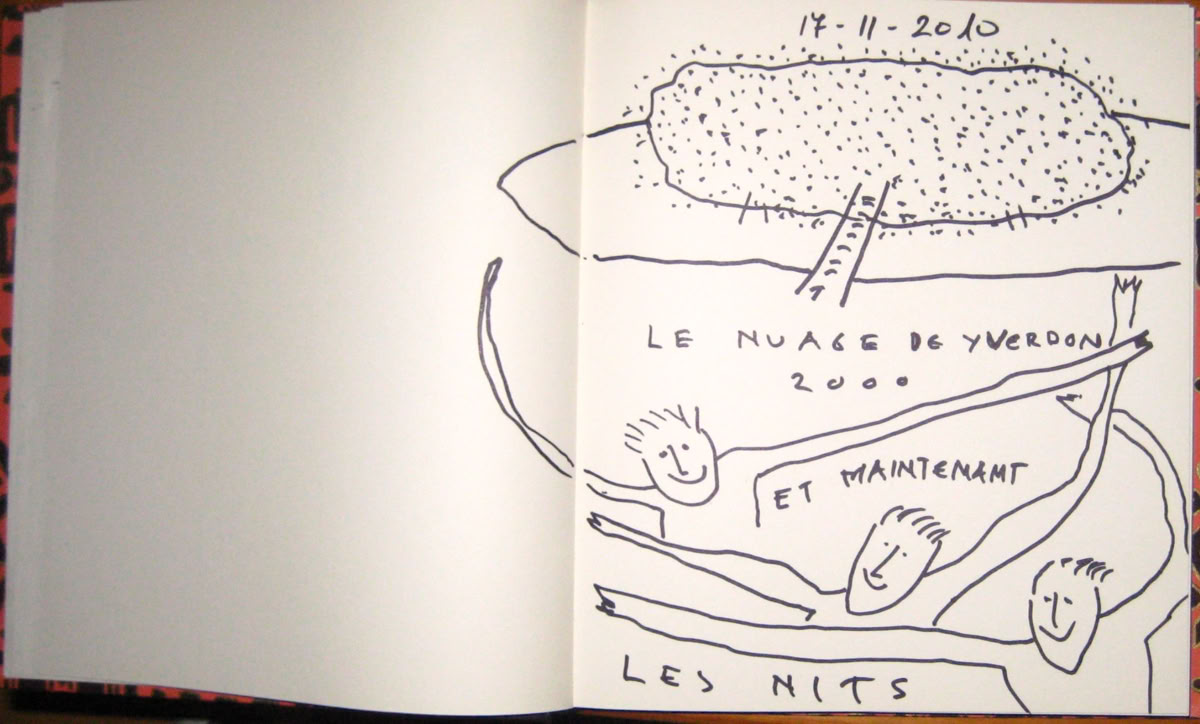 17-11-2010
LE NUAGE DE YVERDON
2000
ET MAINTENANT
LES NITS